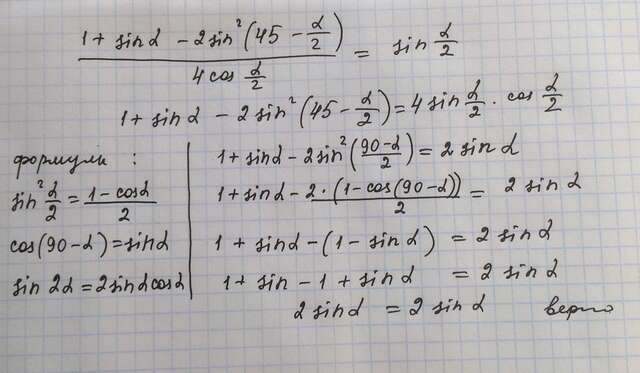 1 + sinα - 2sin²(45 - α/2) / 4cos α/2 = sin α/2
1 + sinα - 2sin²(45 - α/2) = 4sin α/2 · cos α/2
формулы :
sin² α/2 = 1 - cosα / 2
cos(90 - α) = sinα
sin 2α = 2sinα cosα
1 + sinα - 2sin²(90 - α / 2) = 2 sinα
1 + sinα - 2 · (1 - cos(90 - α)) / 2 = 2 sinα
1 + sinα - (1 - sinα) = 2 sinα
1 + sin - 1 + sinα = 2 sinα
2 sinα = 2 sinα верно